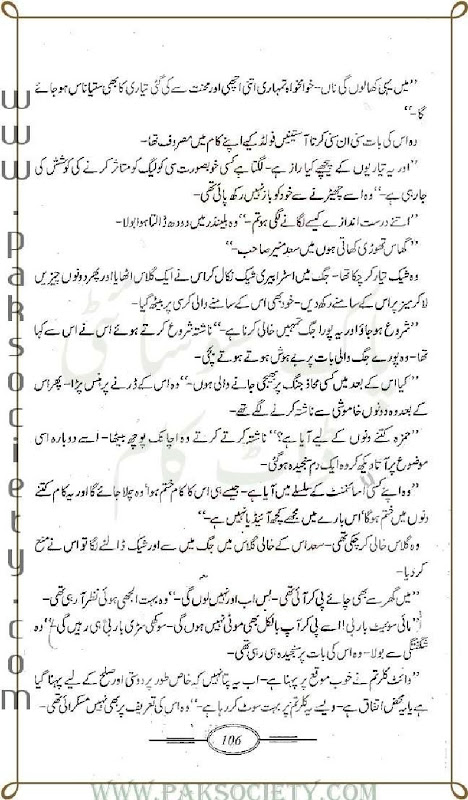 ’’میں یہی کھا لوں گی ناں- خوامخواہ تمہاری اتنی اچھی اور محنت سے کی گئی تیاری کا بھی ستیاناس ہو جائے
گا-‘‘
وہ اس کی بات سنی ان سنی کرتا آستینیں فولڈ کیے اپنے کام میں مصروف تھا-
’’اور یہ تیاریوں کے پیچھے کیا راز ہے- لگتا ہے کسی خوبصورت سی کولیگ کو متاثر کرنے کی کوشش کی
جا رہی ہے-‘‘ وہ اسے چھیڑنے سے خود کو باز نہیں رکھ پائی تھی-
’’اتنے درست اندازے کیسے لگانے لگی ہو تم-‘‘ وہ بلینڈر میں دودھ ڈالتا ہوا بولا-
’’گھاس تھوڑی کھاتی ہوں میں سعد منیر صاحب-‘‘
وہ شیک تیار کر چکا تھا- جگ میں اسٹرابیری شیک نکال کر اس نے ایک گلاس اٹھایا اور پھر دونوں چیزیں
لا کر میز پر اس کے سامنے رکھ دیں- خود بھی اس کے سامنے والی کرسی پر بیٹھ گیا-
’’شروع ہو جاؤ اور یہ پورا جگ تمہیں خالی کرنا ہے-‘‘ ناشتہ شروع کرتے ہوئے اس نے اس سے کہا
تھا- وہ پورے جگ والی بات پر بے ہوش ہوتے ہوتے بچی-
’’کیا اس کے بعد میں کسی محاذ جنگ پر بھیجی جانے والی ہوں-‘‘ وہ اس کے ڈرنے پر ہنس پڑا- پھر اس
کے بعد وہ دونوں خاموشی سے ناشتہ کرنے لگے تھے-
’’حمزہ کتنے دنوں کے لیے آیا ہے؟‘‘ ناشتہ کرتے کرتے وہ اچانک پوچھ بیٹھا- اسے دوبارہ اسی
موضوع پر آتا دیکھ کر وہ ایک دم سنجیدہ ہو گئی-
’’وہ اپنے کسی اسائنمنٹ کے سلسلے میں آیا ہے- جیسے ہی اس کا کام ختم ہوا‘ وہ چلا جائے گا اور یہ کام کتنے
دنوں میں ختم ہو گا‘ اس بارے میں مجھے کچھ آئیڈیا نہیں ہے-‘‘
وہ گلاس خالی کر چکی تھی- سعد اس کے خالی گلاس میں جگ میں سے اور شیک ڈالنے لگا تو اس نے منع
کر دیا-
’’میں گھر سے بھی چائے پی کر آئی تھی- بس اب اور نہیں لوں گی-‘‘ وہ بہت الجھی ہوئی نظر آ رہی تھی-
’’مائی سوئیٹ باربی!! اسے پی کر آپ بالکل بھی موٹی نہیں ہوں گی- سوکھی سڑی باربی ہی رہیں گی‘‘ وہ
شگفتگی سے بولا- وہ اس کی بات پر سنجیدہ ہی رہی تھی-
’’وائٹ کلر تم نے خوب موقع پر پہنا ہے- اب یہ پتا نہیں کہ خاص طور پر دوستی اور صلح کے لیے پہنا گیا
ہے یا یہ محض اتفاق ہے- ویسے یہ کلر تم پر بہت سوٹ کر رہا ہے-‘‘ وہ اس کی تعریف پر بھی نہیں مسکرائی تھی-
106
www.paksociety.com
WWW.PAKSOCIETY.COM
پاک سوسائٹی
ڈاٹ کام